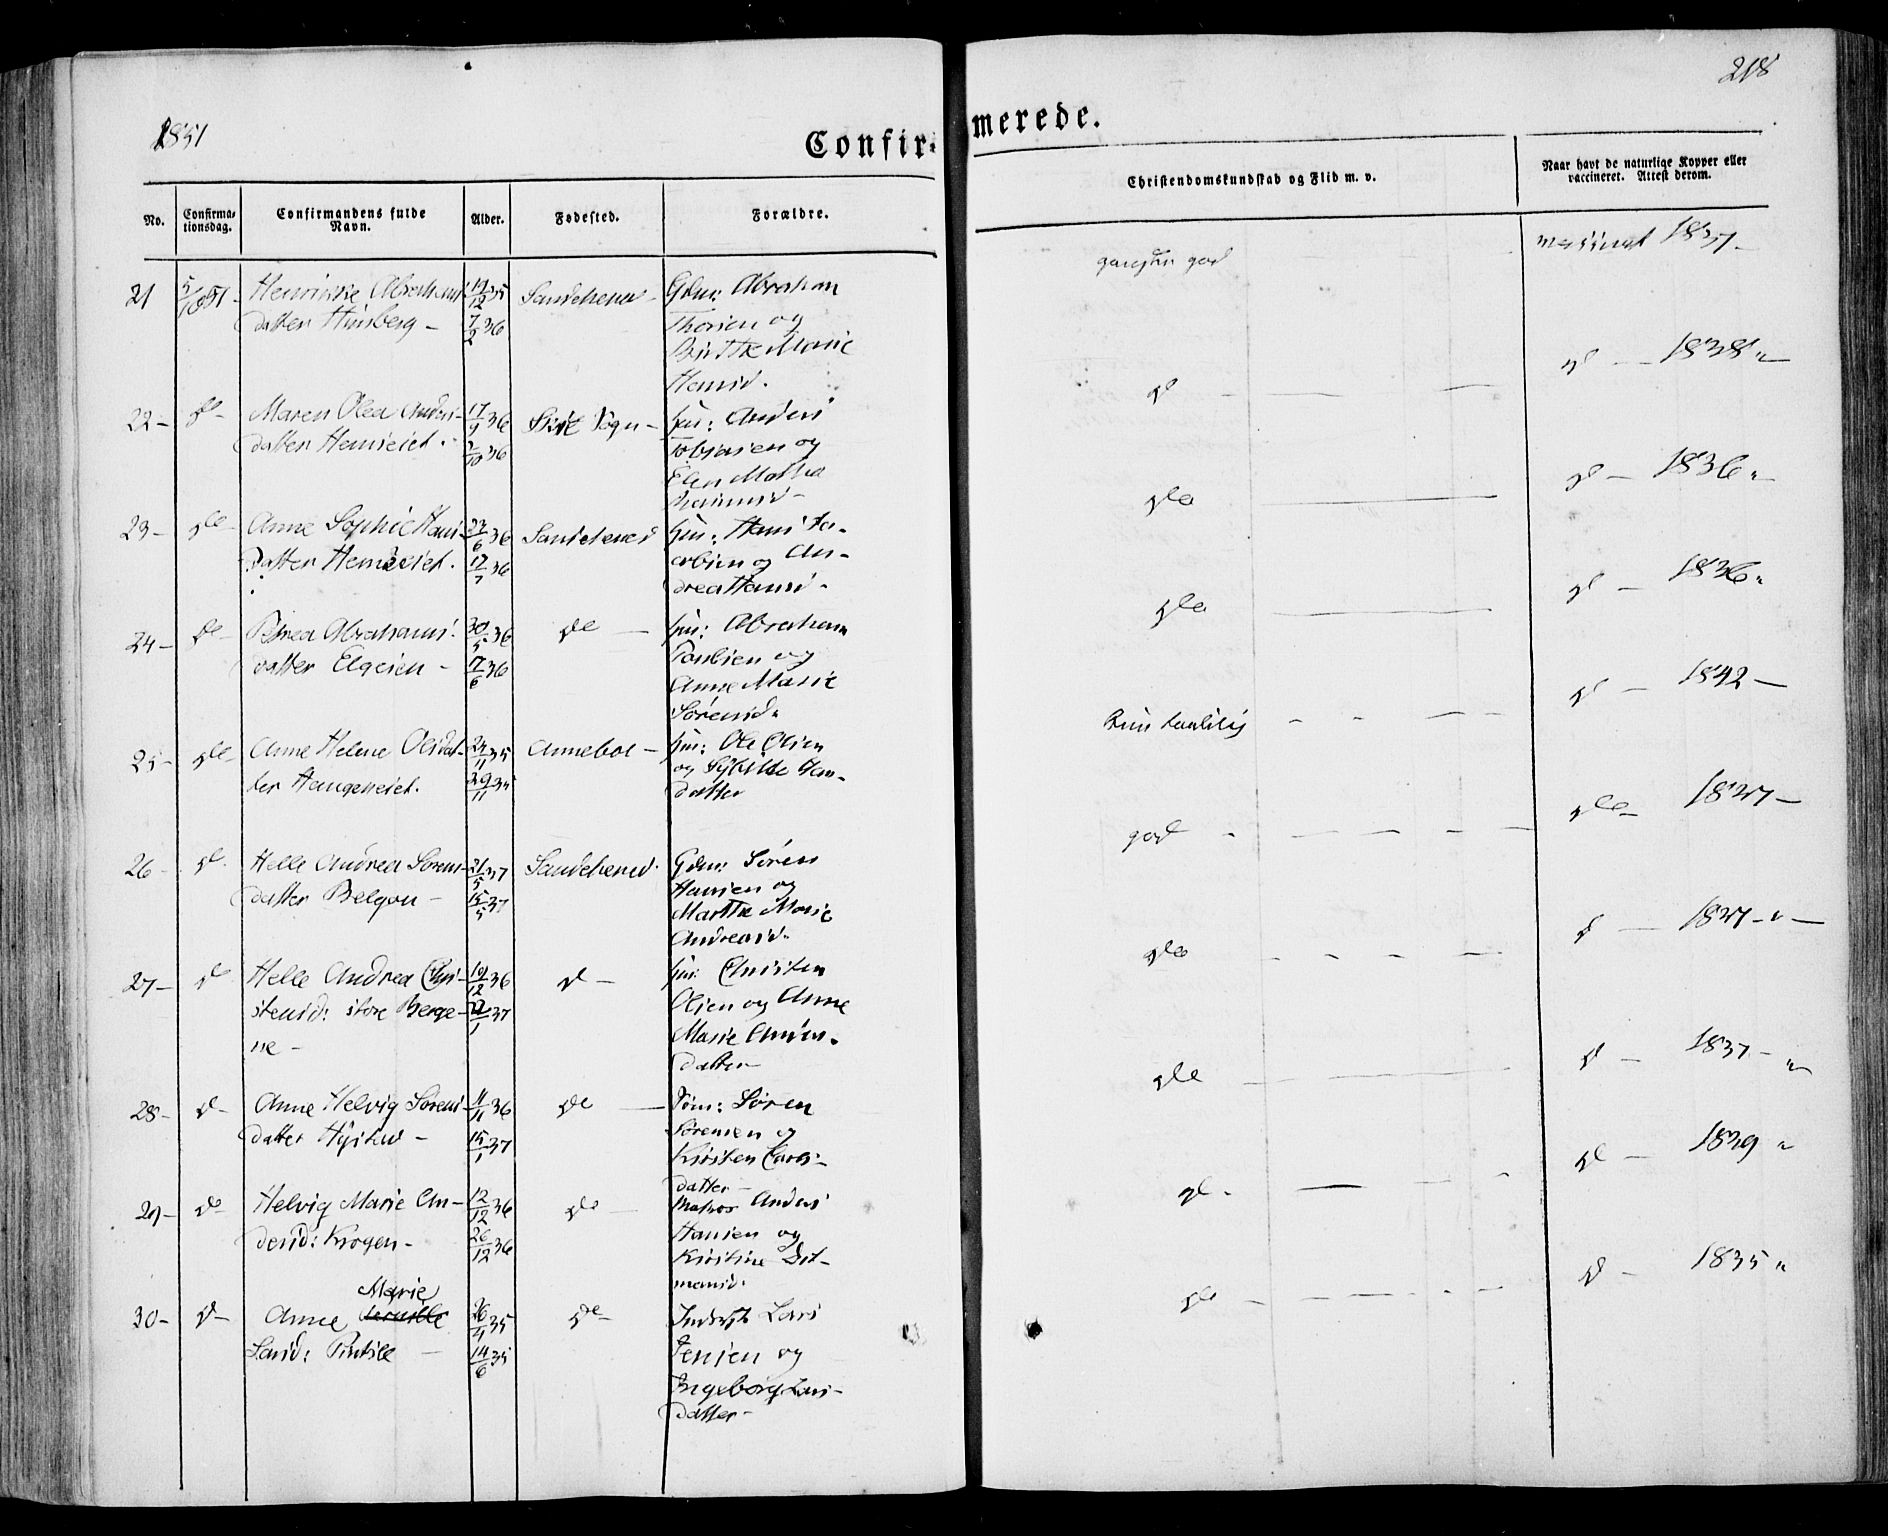 1851
218
Confirmerede.
No.
Confirma-
tionsdag.
Confirmandens fulde
Navn.
Alder.
Fødested.
Forældre.
Christendomskundskab og Flid m. v.
Naar havt de naturlige Kopper eller
vaccineret. Attest derom.
21 5/10 51 Henrikke Abraham
datter
19/12 35
7/2 36
Sandeherred
Gdm: Abraham
Thorsen og
Birthe Marie
Hansd.
god
1837
22 – do – Maren Olea Anders-
datter
17/9 36
/10 36
Sogn –
Hm: Anders
Tobiasen og
Elen Mathea
do
do – 1838 "
23 – do Anne Sophie Hans
datter
23/6 36
17/7 36
Sandeherred
Hm: Hans
og An-
drea Hansd –
do
do – 1836 "
24 – do – Petrea Abrahams-
datter
30/5 36
17/6 36
do
Hm: Abraham
Paulsen og
Anne Marie
Sørensd.
do
do – 1836 "
25 – do – Anne Helene Olsdat-
ter Haugeneiet.
24/11 35
29/11 35
Annebol –
Hm: Ole Olsen
og Han-
datter
taalelig
do – 1842 –
26 – do. Helle Andrea Sørens-
datter
21/3 37
15/5 37
Sandeherred.
Gdm: Søren
Hansen og
Marthe Marie
Andreasd.
god
do – 1837 –
27 – do Helle Andrea Chri-
stensd: store Berge-
ne –
19/12 36
22/1 37
do –
Hm: Christen
Olsen og Anne
Marie Anders-
datter –
do
do – 1837 – " –
28 – do – Anne Helvig Sørens-
datter
11/11 36
15/1 37
do
Søm: Søren
Sørensen og
Kirsten Lars-
datter –
do
do – 1837 – "
29 – do – Helvig Marie An-
dersd: Krogen –
12/12 36
26/12 36
do
Matros Anders
Hansen og
Kirstine
do –
do – 1839 "
30 – do – Anne Marie
Larsd:
26/4 35
14/6 35
do –
Inderst Lars
Jensen og
Ingeborg Lars-
datter –
do
do – 1835 "